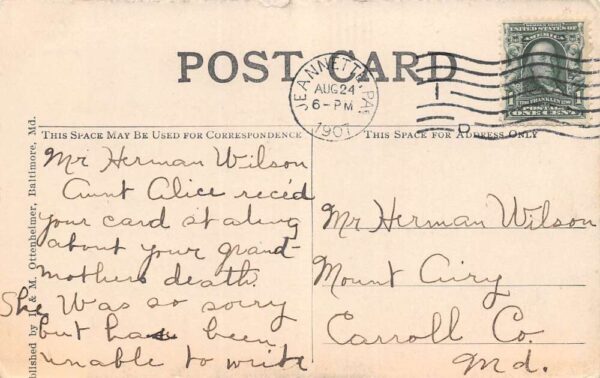 POST CARD
JEANNETTE, PA.
AUG 24
6-PM
1907
UNITED STATES OF
AMERICA
1 FRANKLIN 1
POSTAGE
ONE CENT
THIS SPACE MAY BE USED FOR CORRESPONDENCE
THIS SPACE FOR ADDRESS ONLY
Mr Herman Wilson
Aunt Alice rec'd
your card stating
about your grand-
mothers death.
She was so sorry
but has been
unable to write
Mr Herman Wilson
Mount Airy
Carroll Co.
Md.
blished by I. & M. Ottenheimer, Baltimore, Md.